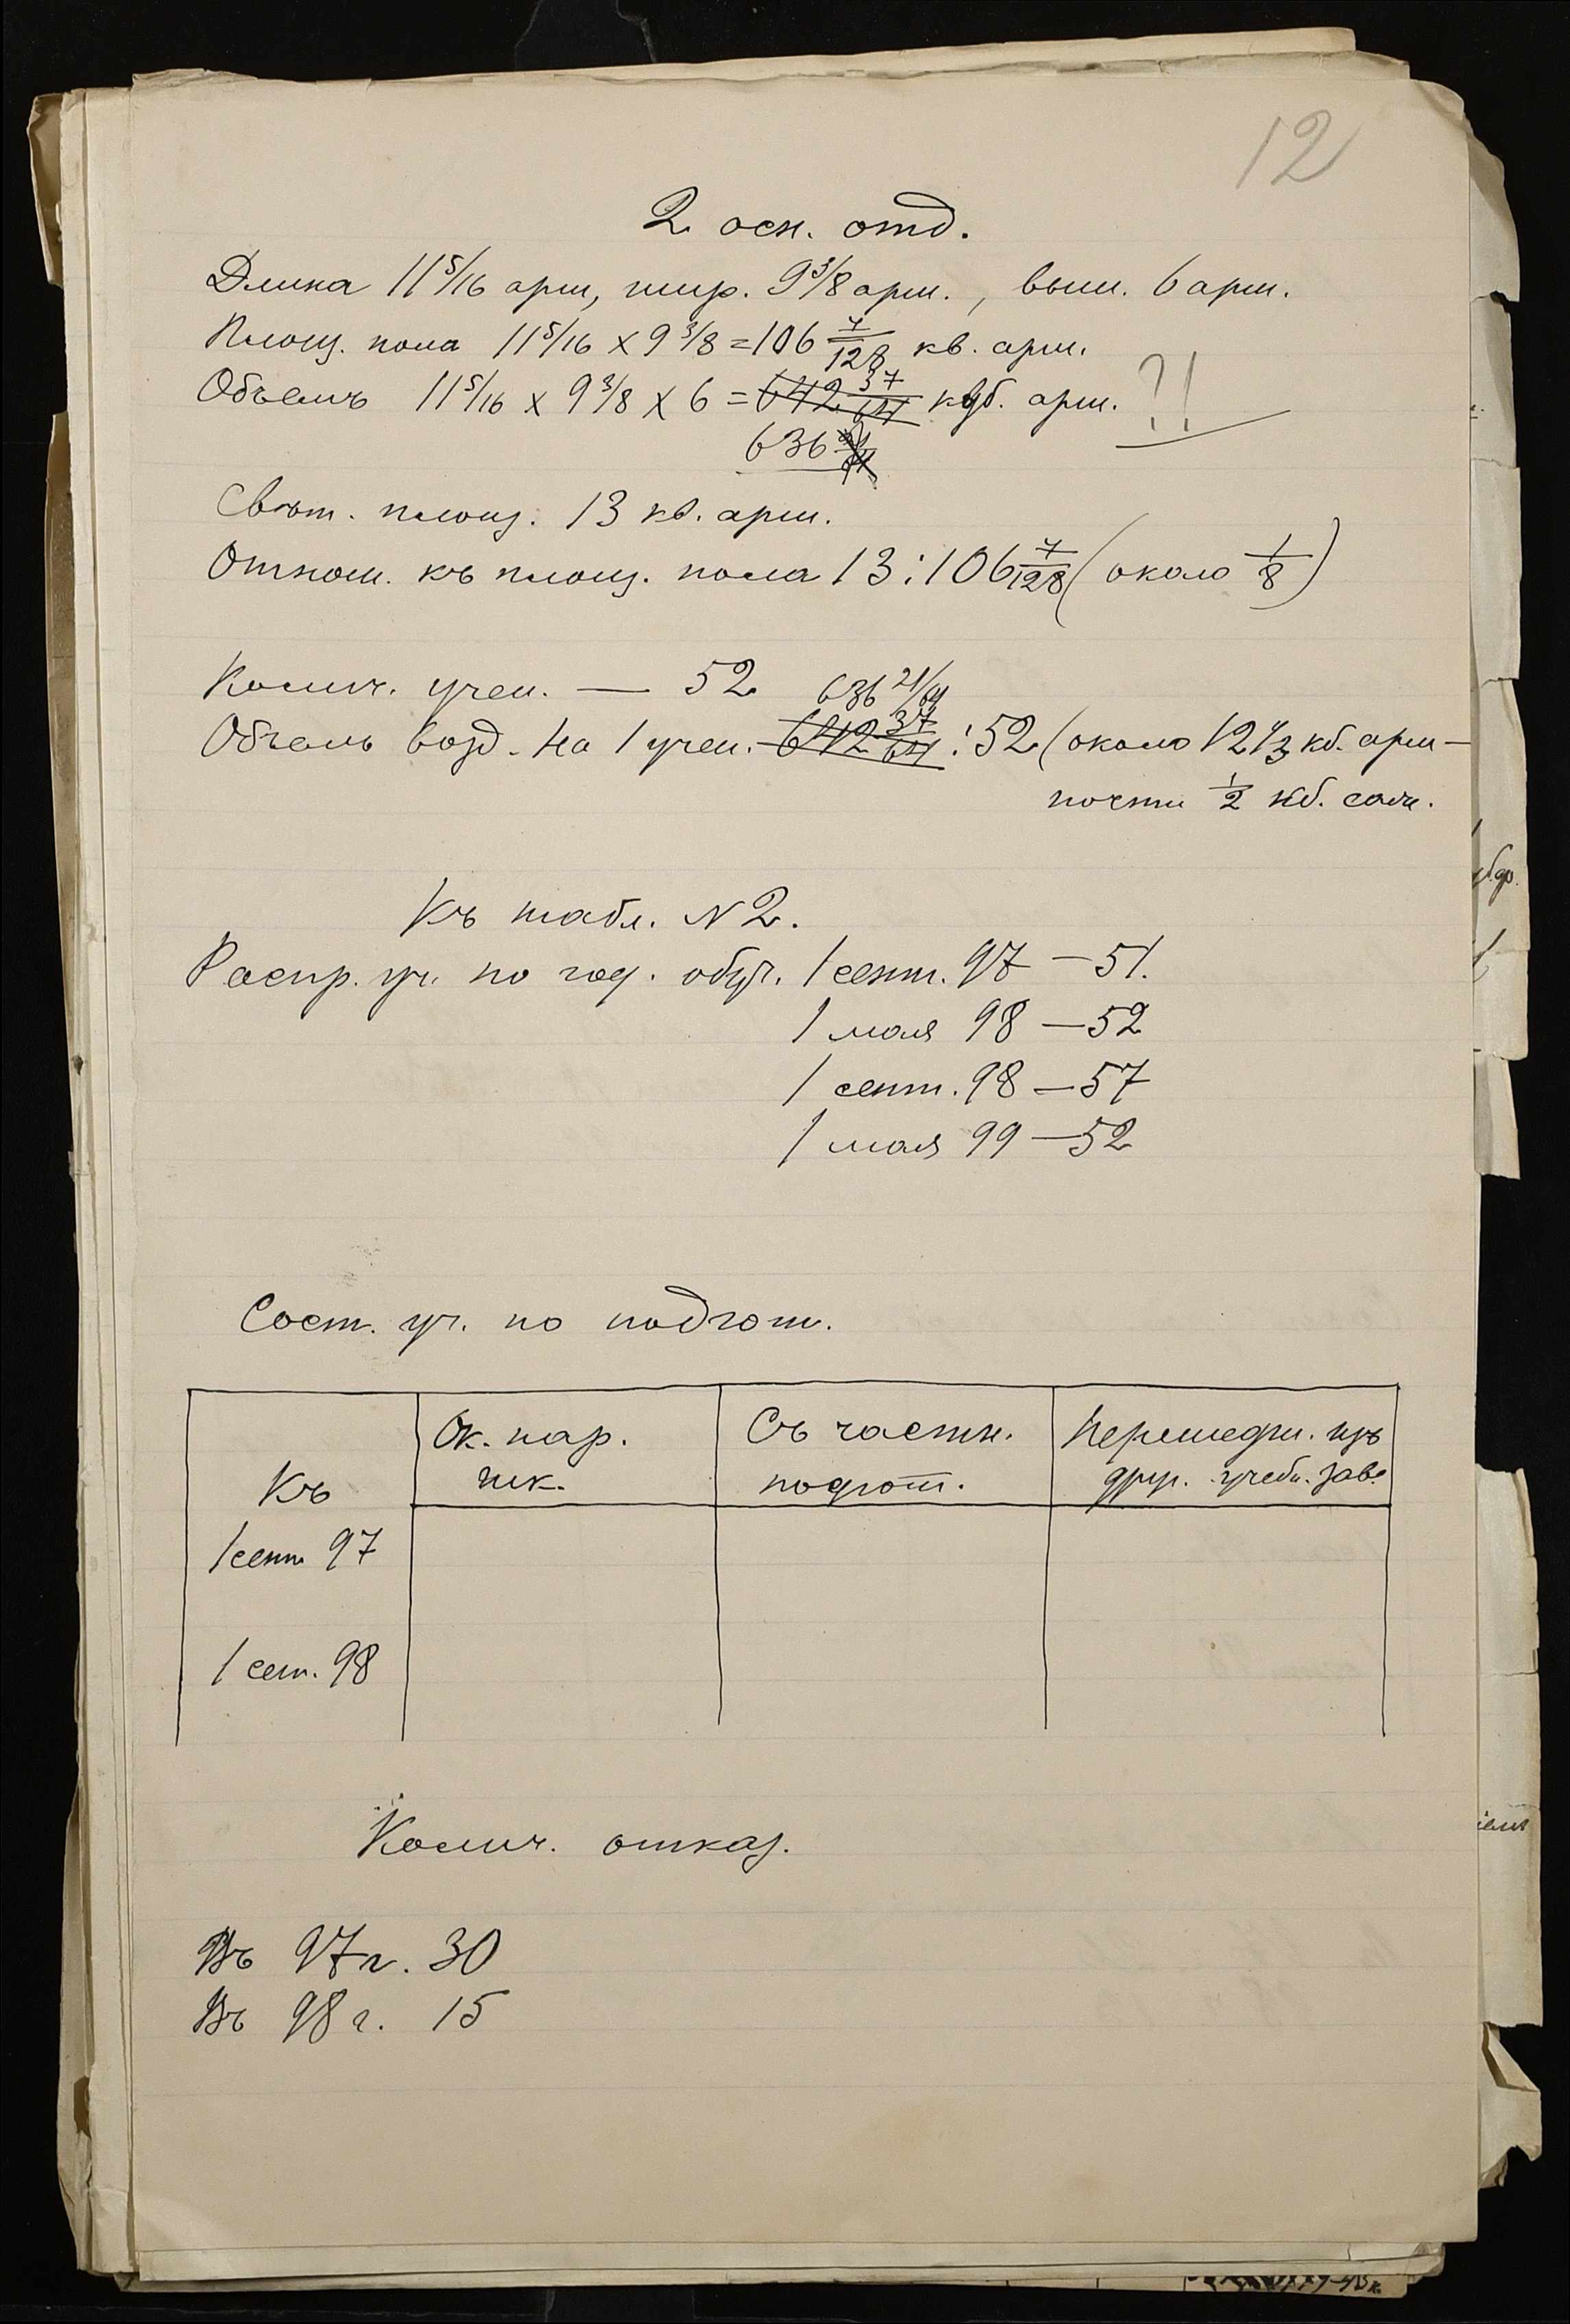 12
2 осн. отд.
Длина 11 5/16 арш, шир. 9 3/8 арш., выш. 6 арш.
Площ. пола 11 5/16 x 9 3/8 = 106 7/128 кв. арш.
Объемъ 11 5/16 x 9 3/8 x 6 = 642 37/64 куб. арш. ?!
636
Свѣт. площ. 13 кв. арш.
Отнош. къ площ. пола 13 : 106 7/128 (около 1/8)
Колич. учен. — 52
636 21/64
Объемъ возд. на 1 учен. - 642 37/64 : 52 (около 12 1/3 кб. арш —
почти 1/2 кб. саж.
Къ табл. N 2.
Распр. уч. по год. обуч. 1 сент. 97 — 51.
1 мая 98 — 52
1 сент. 98 — 57
1 мая 99 — 52
Сост. уч. по подгот.
Къ
Ок. нар. шк.
Съ частн. подгот.
Перешедш. изъ друг. учебн. зав.
1 сент 97
1 сент. 98
Колич. отказ.
Въ 97 г. 30
Въ 98 г. 15